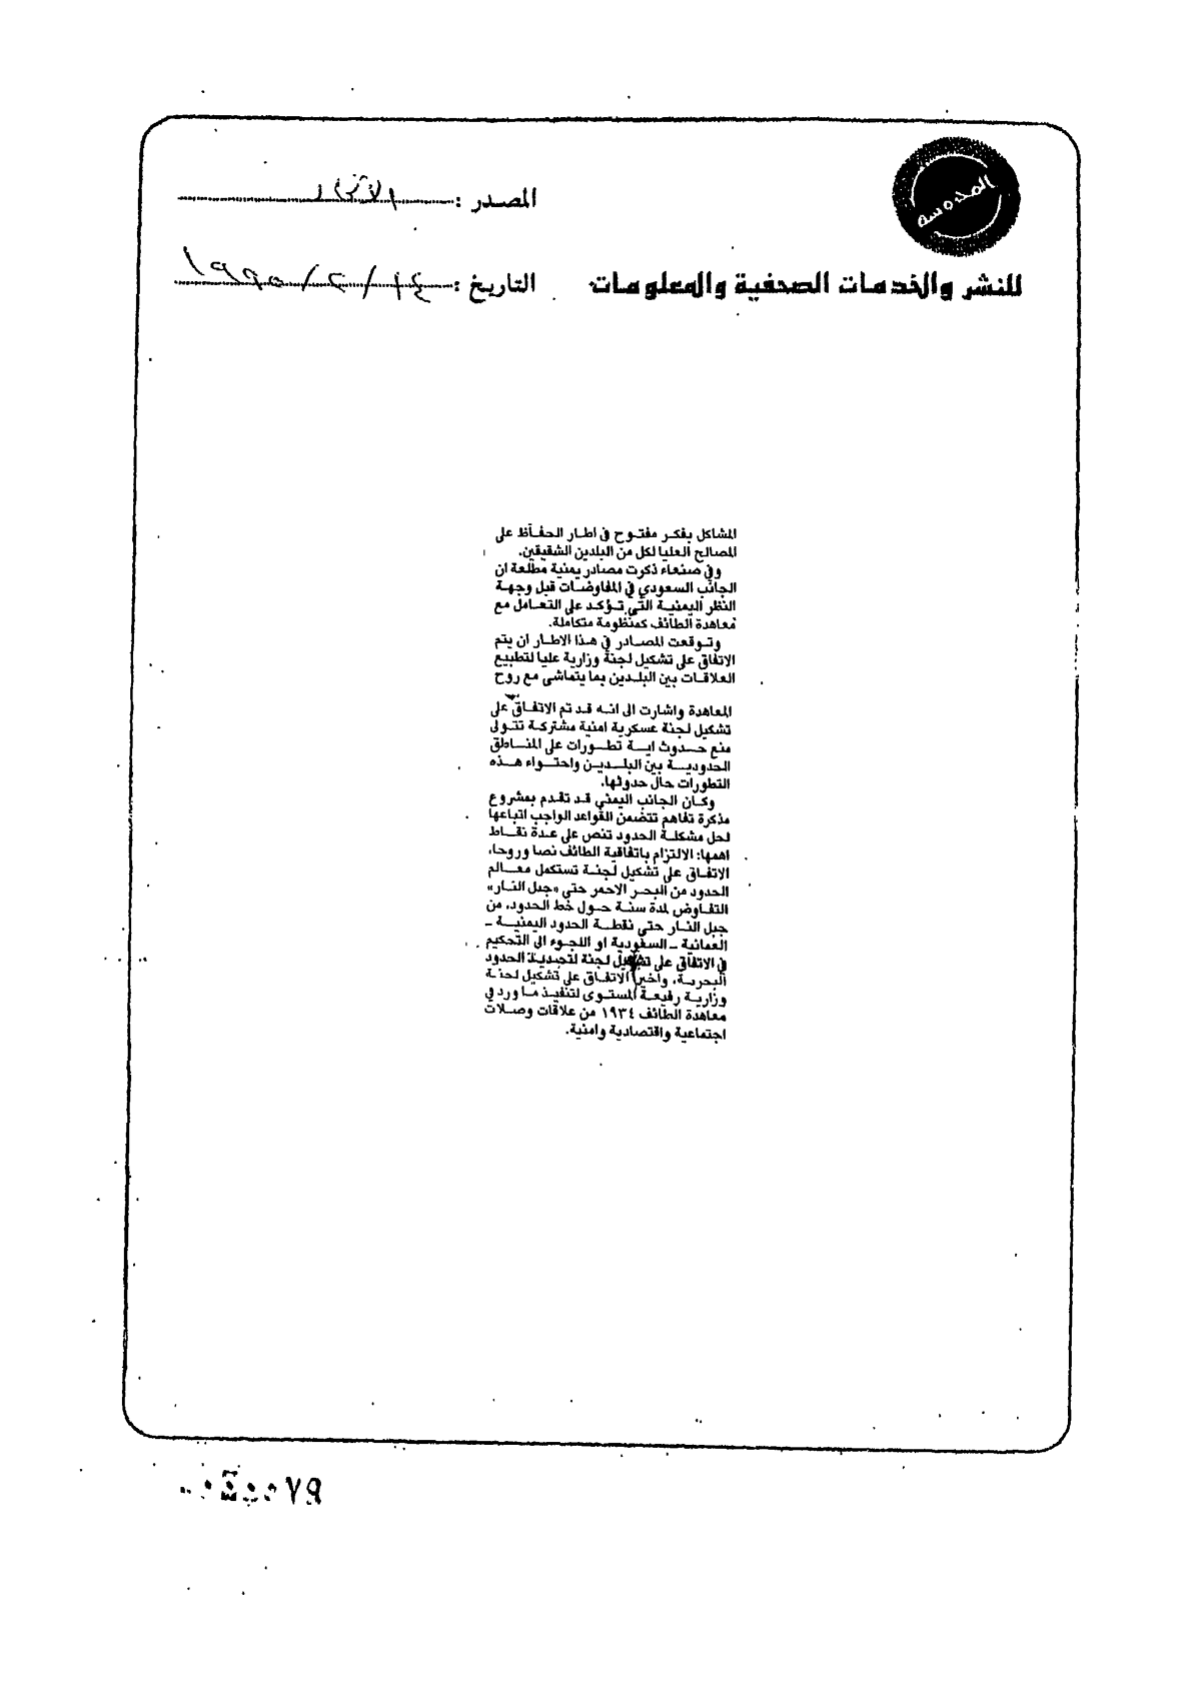 المحروسة
المصدر : الاتحاد
للنشر والخدمات الصحفية والمعلومات
التاريخ : ١٤ / ٢ / ١٩٩٥
المشاكل بفكر مفتوح فى اطار الحفاظ على
المصالح العليا لكل من البلدين الشقيقين.
وفي صنعاء ذكرت مصادر يمنية مطلعة ان
الجانب السعودي في المفاوضات قبل وجهة
النظر اليمنية التي تؤكد على التعامل مع
معاهدة الطائف كمنظومة متكاملة.
وتوقعت المصادر في هذا الاطار ان يتم
الاتفاق على تشكيل لجنة وزارية عليا لتطبيع
العلاقات بين البلدين بما يتماشى مع روح
المعاهدة واشارت الى انه قد تم الاتفاق على
تشكيل لجنة عسكرية امنية مشتركة تتولى
منع حدوث اية تطورات على المناطق
الحدودية بين البلدين واحتواء هذه
التطورات حال حدوثها.
وكان الجانب اليمني قد تقدم بمشروع
مذكرة تفاهم تتضمن القواعد الواجب اتباعها
لحل مشكلة الحدود تنص على عدة نقاط
اهمها: الالتزام باتفاقية الطائف نصا وروحا،
الاتفاق على تشكيل لجنة تستكمل معالم
الحدود من البحر الاحمر حتى «جبل النار»
التفاوض لمدة سنة حول خط الحدود، من
جبل النار حتى نقطة الحدود اليمنية ـ
العمانية ـ السعودية او اللجوء الى التحكيم
في الاتفاق على تشكيل لجنة لتحديد الحدود
البحرية، واخيرا الاتفاق على تشكيل لجنة
وزارية رفيعة المستوى لتنفيذ ما ورد في
معاهدة الطائف ١٩٣٤ من علاقات وصلات
اجتماعية واقتصادية وامنية.